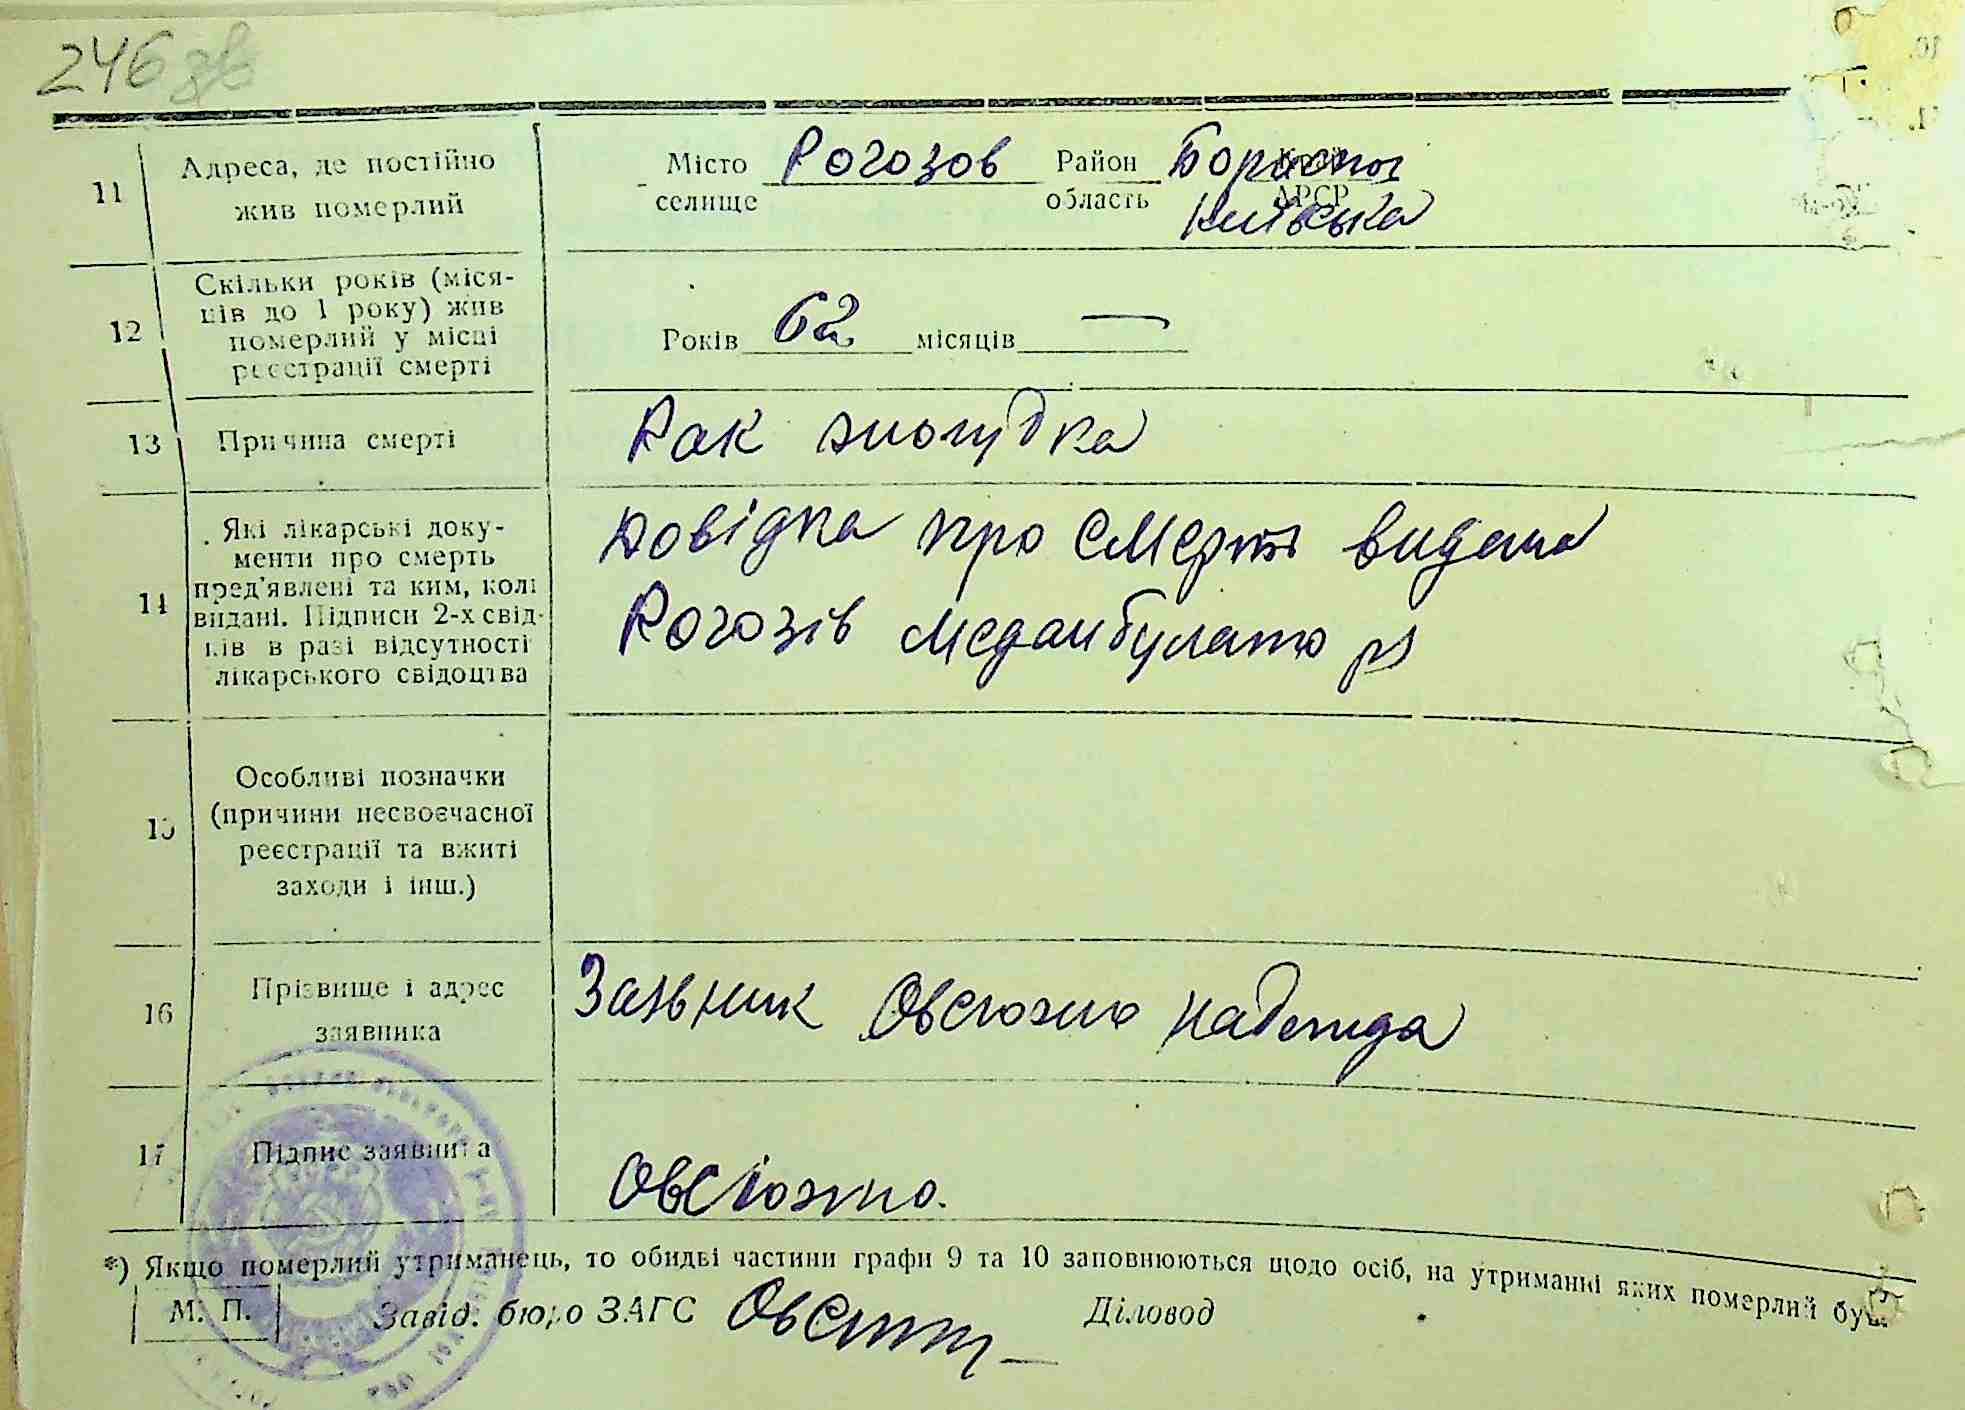 246 зв
11 Адреса, де постійно жив померлий
Місто селище Рогозов Район область Бориспол Київська АРСР
12 Скільки років (міся-
ців до 1 року) жив
померлий у місці
реєстрації смерті
Років 62 місяців —
13 Причина смерті
Рак жолудка
14 Які лікарські доку-
менти про смерть
пред'явлені та ким, колі
видані. Підписи 2-х свід-
ків в разі відсутності
лікарського свідоцтва
Довідка про смерть видана
Рогозів медамбулаторія
15 Особливі позначки
(причини несвоєчасної
реєстрації та вжиті
заходи і інш.)
16 Прізвище і адрес
заявника
Заявник Овсюхно Надежда
17 Підпис заявника
Овсюхно.
*) Якщо померлий утриманець, то обидві частини графи 9 та 10 заповнюються щодо осіб, на утриманні яких померлий був.
М. П. Завід. бюро ЗАГС Діловод